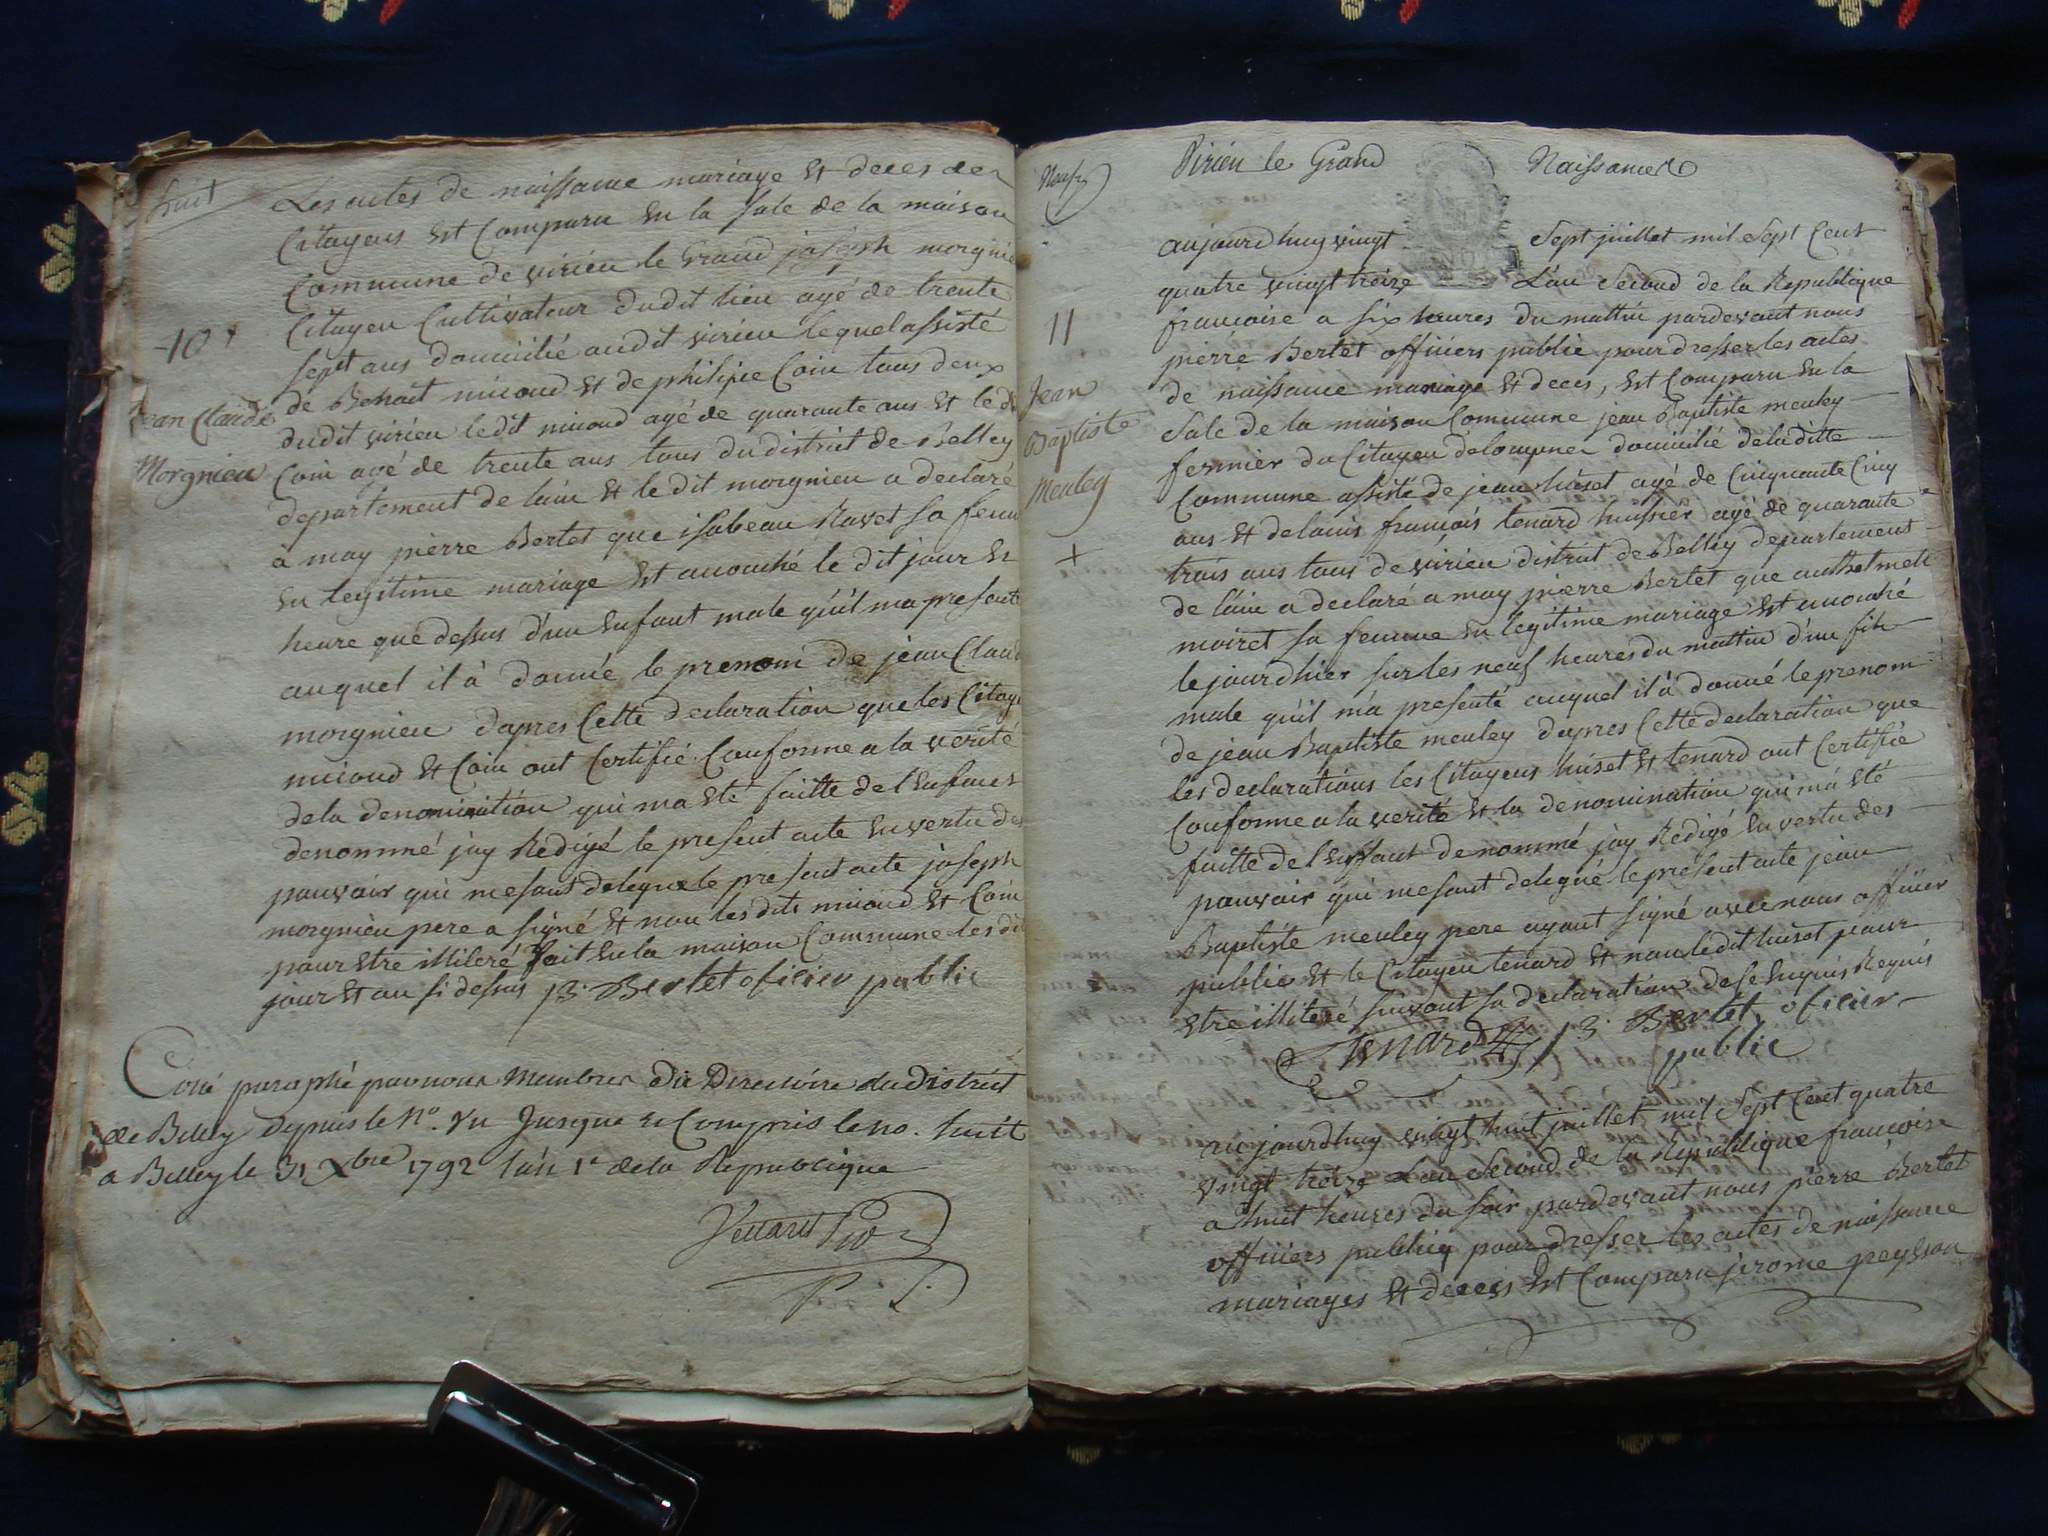 huit
Les actes de naissance mariage et deces des
Citoyens Est Comparu En la Sale de la maison
Commune de virieu le Grand joseph morgnie
Citoyen Cultivateur dudit lieu agé de trente
sept ans domicilié audit virieu lequel assisté
de Benoit miuoud Et de philipe Coin tous deux
dudit virieu ledit miuoud agé de quarante ans Et le d
Coin agé de trente ans tous du district de Belley
departement de lain Et le dit morgnieu a declaré
a moy pierre Bertet que isabeau Ravet sa femm
En legitime mariage Est acouché le dit jour Et
heure que dessus d'un Enfant male qu'il ma presenté
auquel il à donné le prenom de jean Claud
morgnieu dapres Cette declaration que les Citoye
miuoud Et Coin ont Certifié Conforme a la verité
de la denomination qui ma Eté faitte de l'Enfans
denommé jay Redigé le present acte En vertu des
pouvoir qui me sont delegue le present acte joseph
morgnieu pere a signé Et non les dits miuoud Et Coin
pour Etre illiteré fait En la maison Commune les dit
jour Et an si dessus p. Bertet oficier public
10 +
Jean Claude
Morgnieu
Coté paraphé par nous Membres du Directoire du District
de Belley depuis le No. Un Jusque et Compris le no. huit
a Belley le 31 Xbre 1792 l'an 1er de la Republique
Neuf
Virieu le Grand Naissances
aujourd huy vingt Sept juillet mil Sept Cent
quatre vingt treize L'an Second de la Republique
francoise a six heures du mattin pardevant nous
pierre Bertet officiers public pour dresser les actes
de naissance mariage Et deces, Est Comparu En la
Sale de la maison Commune jean Baptiste meuley
fermier du Citoyen delompnes domicilié de laditte
Commune assisté de jean huset agé de Cinquante Cinq
ans Et de louis francois tenard huissier agé de quarante
trois ans tous de virieu district de Belley departement
de lain a declare a moy pierre Bertet que anthelmette
moiret sa femme En legitime mariage Est acouché
le jourdhier sur les neuf heures du mattin d'un fils
male qu'il m'a presenté auquel il à donné le prenom
de jean Baptiste meuley dapres Cette declaration que
les declarations les Citoyens huset Et tenard ont Certifié
Conforme a la verité Et la denomination qui m'a Eté
faitte de l'Enfant denommé jay Redigé En vertu des
pouvoir qui me sont delegué le present acte jean
Baptiste meuley pere ayant signé avec nous officier
public Et le Citoyen tenard Et non ledit huset pour
Etre illiteré suivant sa declaration de ce Enquis Requis
Tenard p. Bertet oficier
public
11
Jean
Baptiste
Meuley
+
aujourdhuy vingt huit juillet mil Sept Cent quatre
vingt treize L'an Second de la Republique francoise
a huit heures du soir pardevant nous pierre Bertet
officiers public pour dresser les actes de naissance
mariages Et deceés Est Comparu jerome peysson